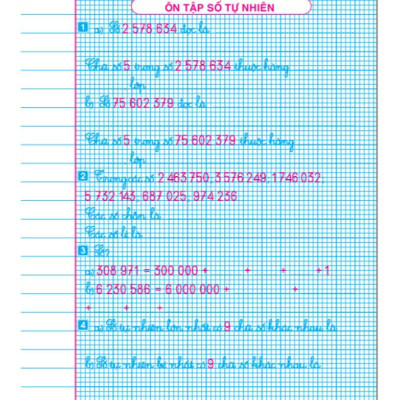 ÔN TẬP SỐ TỰ NHIÊN
1 a) Số 2 578 634 đọc là
Chữ số 5 trong số 2 578 634 thuộc hàng
lớp
b) Số 75 602 379 đọc là
Chữ số 5 trong số 75 602 379 thuộc hàng
lớp
2 Trong các số 2 463 750; 3 576 249; 1 746 032;
5 732 143; 687 025; 974 236
Các số chẵn là
Các số lẻ là
3 Số?
a) 308 971 = 300 000 + + + + 1
b) 6 230 586 = 6 000 000 + +
+ + +
4 a) Số tự nhiên lớn nhất có 9 chữ số khác nhau là
b) Số tự nhiên bé nhất có 9 chữ số khác nhau là